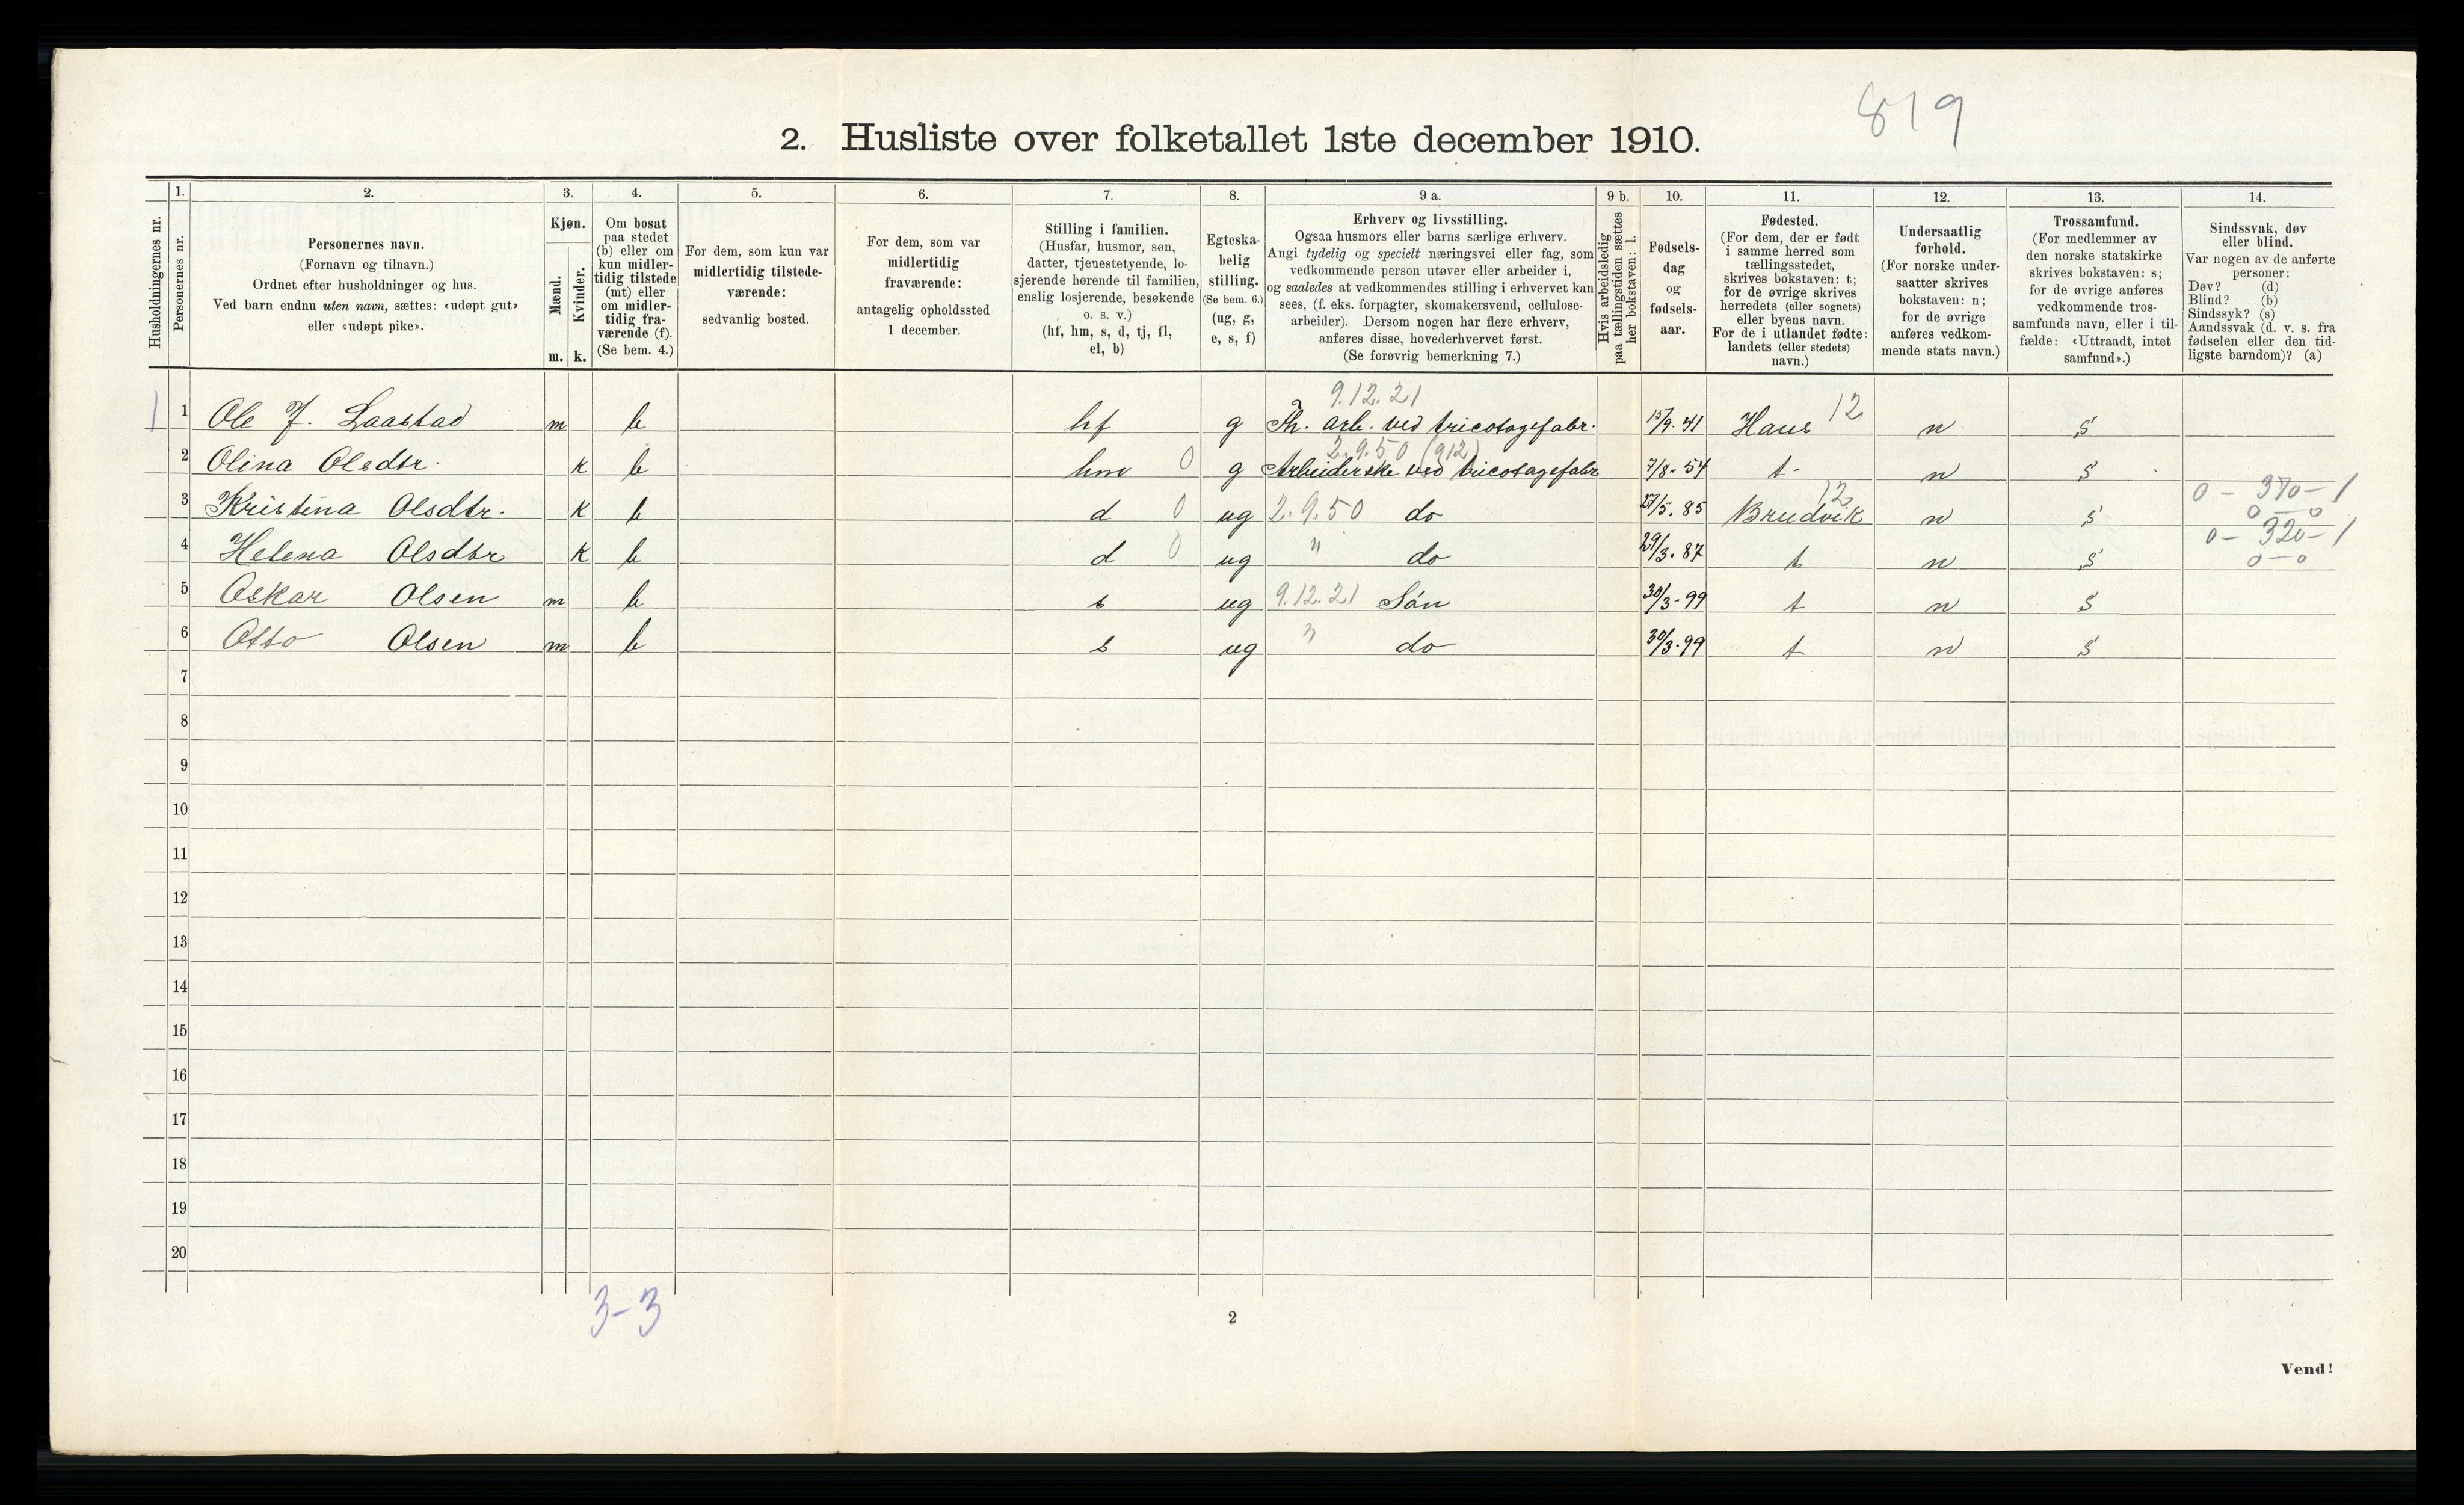 819
2. Husliste over folketallet 1ste december 1910.
Husholdningernes nr.
1.
Personernes nr.
2.
Personernes navn.
(Fornavn og tilnavn.)
Ordnet efter husholdninger og hus.
Ved barn endnu uten navn, sættes: «udøpt gut»
eller «udøpt pike».
3.
Kjøn.
Mænd.
Kvinder.
m. k.
4.
Om bosat
paa stedet
(b) eller om
kun midler-
tidig tilstede
(mt) eller
om midler-
tidig fra-
værende (f).
(Se bem. 4.)
5.
For dem, som kun var
midlertidig tilstede-
værende:
sedvanlig bosted.
6.
For dem, som var
midlertidig
fraværende:
antagelig opholdssted
1 december.
7.
Stilling i familien.
(Husfar, husmor, søn,
datter, tjenestetyende, lo-
sjerende hørende til familien,
enslig losjerende, besøkende
o. s. v.)
(hf, hm, s, d, tj, fl,
el, b)
8.
Egteska-
belig
stilling.
(Se bem. 6.)
(ug, g,
e, s, f)
9 a.
Erhverv og livsstilling.
Ogsaa husmors eller barns særlige erhverv.
Angi tydelig og specielt næringsvei eller fag, som
vedkommende person utøver eller arbeider i,
og saaledes at vedkommendes stilling i erhvervet kan
sees, (f. eks. forpagter, skomakersvend, cellulose-
arbeider). Dersom nogen har flere erhverv,
anføres disse, hovederhvervet først.
(Se forøvrig bemerkning 7.)
9 b.
Hvis arbeidsledig
paa tællingstiden sættes
her bokstaven: l.
10.
Fødsels-
dag
og
fødsels-
aar.
11.
Fødested.
(For dem, der er født
i samme herred som
tællingsstedet,
skrives bokstaven: t;
for de øvrige skrives
herredets (eller sognets)
eller byens navn.
For de i utlandet fødte:
landets (eller stedets)
navn.)
12.
Undersaatlig
forhold.
(For norske under-
saatter skrives
bokstaven: n;
for de øvrige
anføres vedkom-
mende stats navn.)
13.
Trossamfund.
(For medlemmer av
den norske statskirke
skrives bokstaven: s;
for de øvrige anføres
vedkommende tros-
samfunds navn, eller i til-
fælde: «Uttraadt, intet
samfund».)
14.
Sindssvak, døv
eller blind.
Var nogen av de anførte
personer:
Døv? (d)
Blind? (b)
Sindssyk? (s)
Aandssvak (d. v. s. fra
fødselen eller den tid-
ligste barndom)? (a)
9.12.21
1 1 Ole J. Laastad m b hf g Fh. arb. ved tricotagefabr. 15/9.41 Haus 12 n s
2.9.50 (912)
2 Olina Olsdtr. k b hm 0 g Arbeiderske ved tricotagefabr 7/8.54 t n s
12 0 - 370 - 1
3 Kristina Olsdtr. k b d 0 ug 2.9.50 do 27/5.85 Brudvik n s 0 - 0
0 - 320 - 1
4 Helena Olsdtr k b d 0 ug " do 29/3.87 t n s 0 - 0
5 Oskar Olsen m b s ug 9.12.21 Sön 30/3-99 t n s
6 Otto Olsen m b s ug " do 30/3-99 t n s
7
8
9
10
11
12
13
14
15
16
17
18
19
20
3-3
2
Vend!